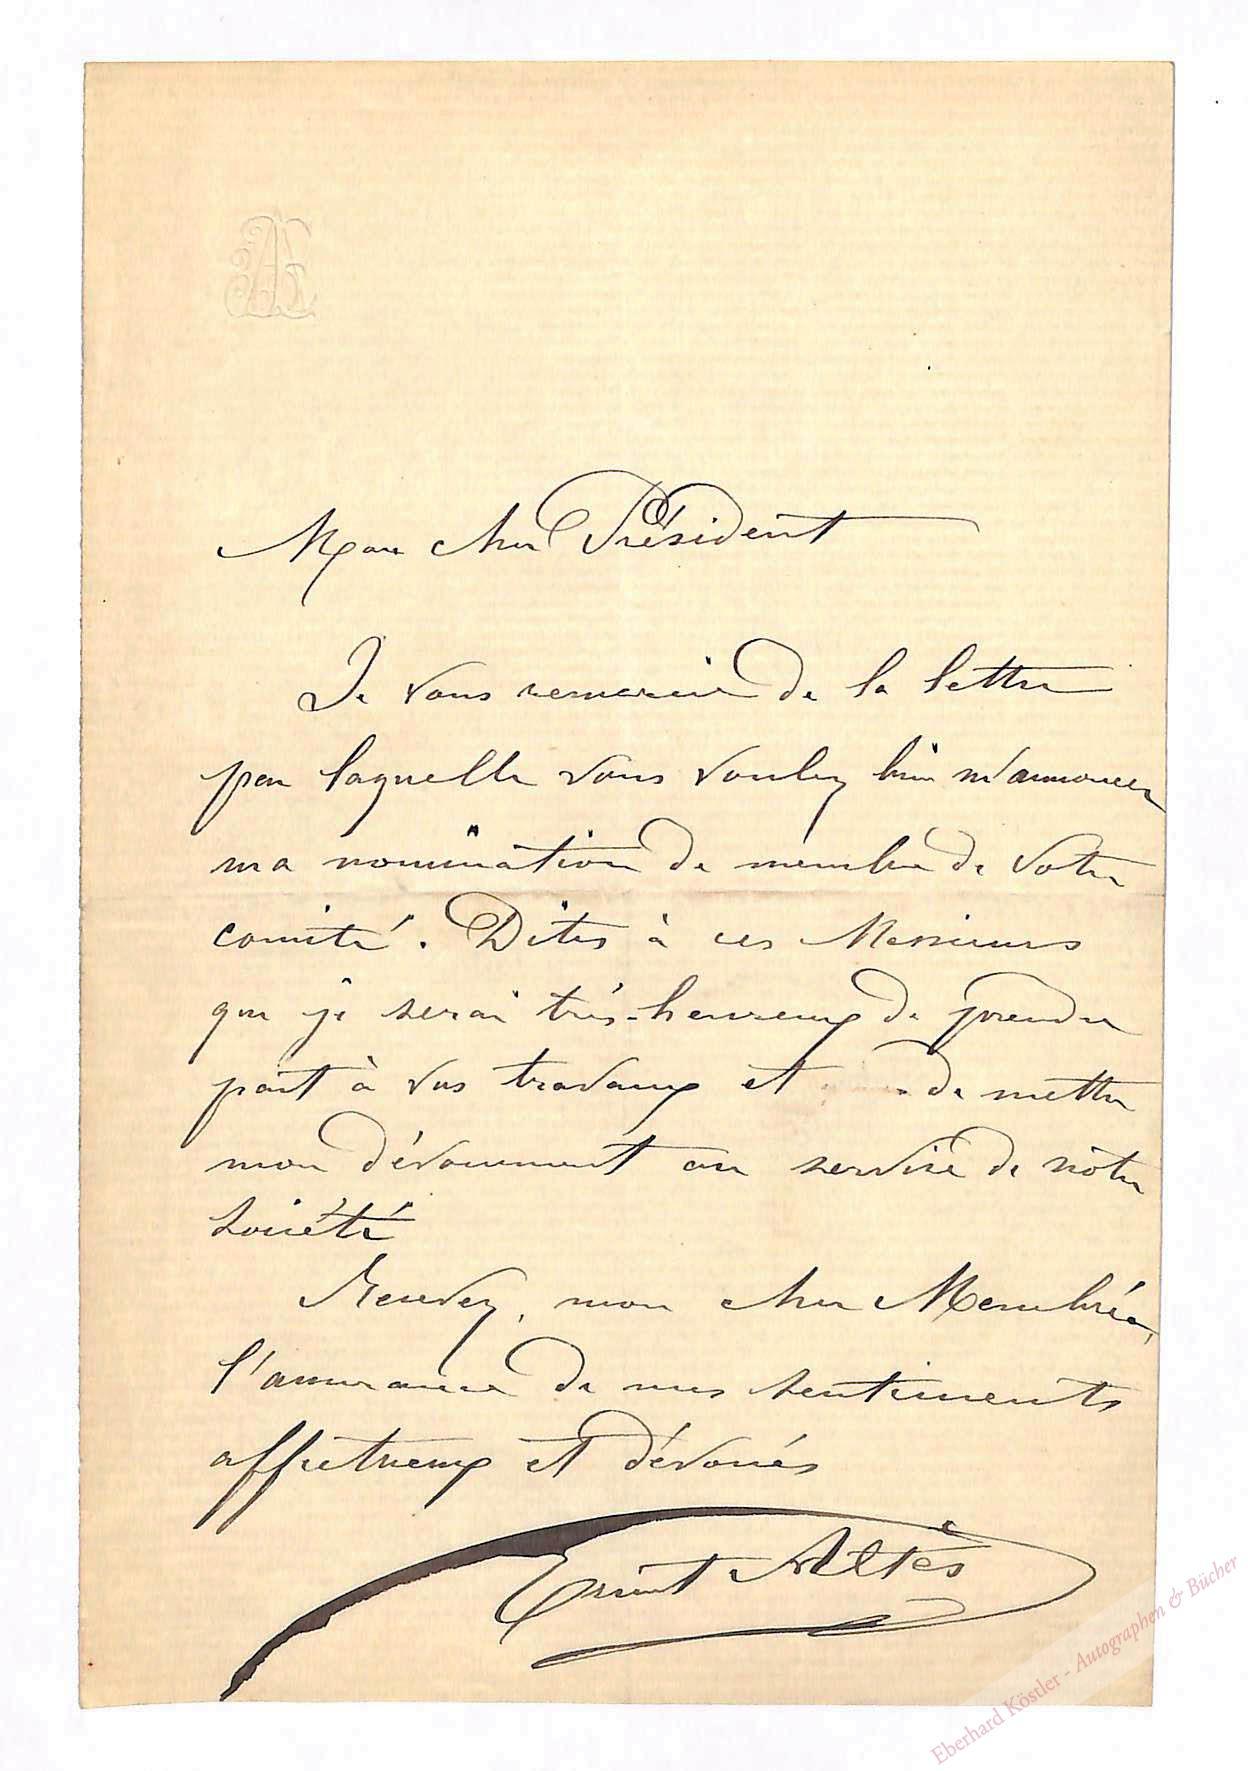 AE
Mon cher Président
Je vous remercie de la lettre
par laquelle vous voulez bien m'annoncer
ma nomination de membre de votre
comité. Dites à ces Messieurs
que je serai très-heureux de prendre
part à vos travaux et de mettre
mon dévouement au service de nôtre
société
Recevez, mon cher Membrée,
l'assurance de mes sentiments
affectueux et dévoués
Ernest Altès
Eberhard Köstler - Autographen & Bücher